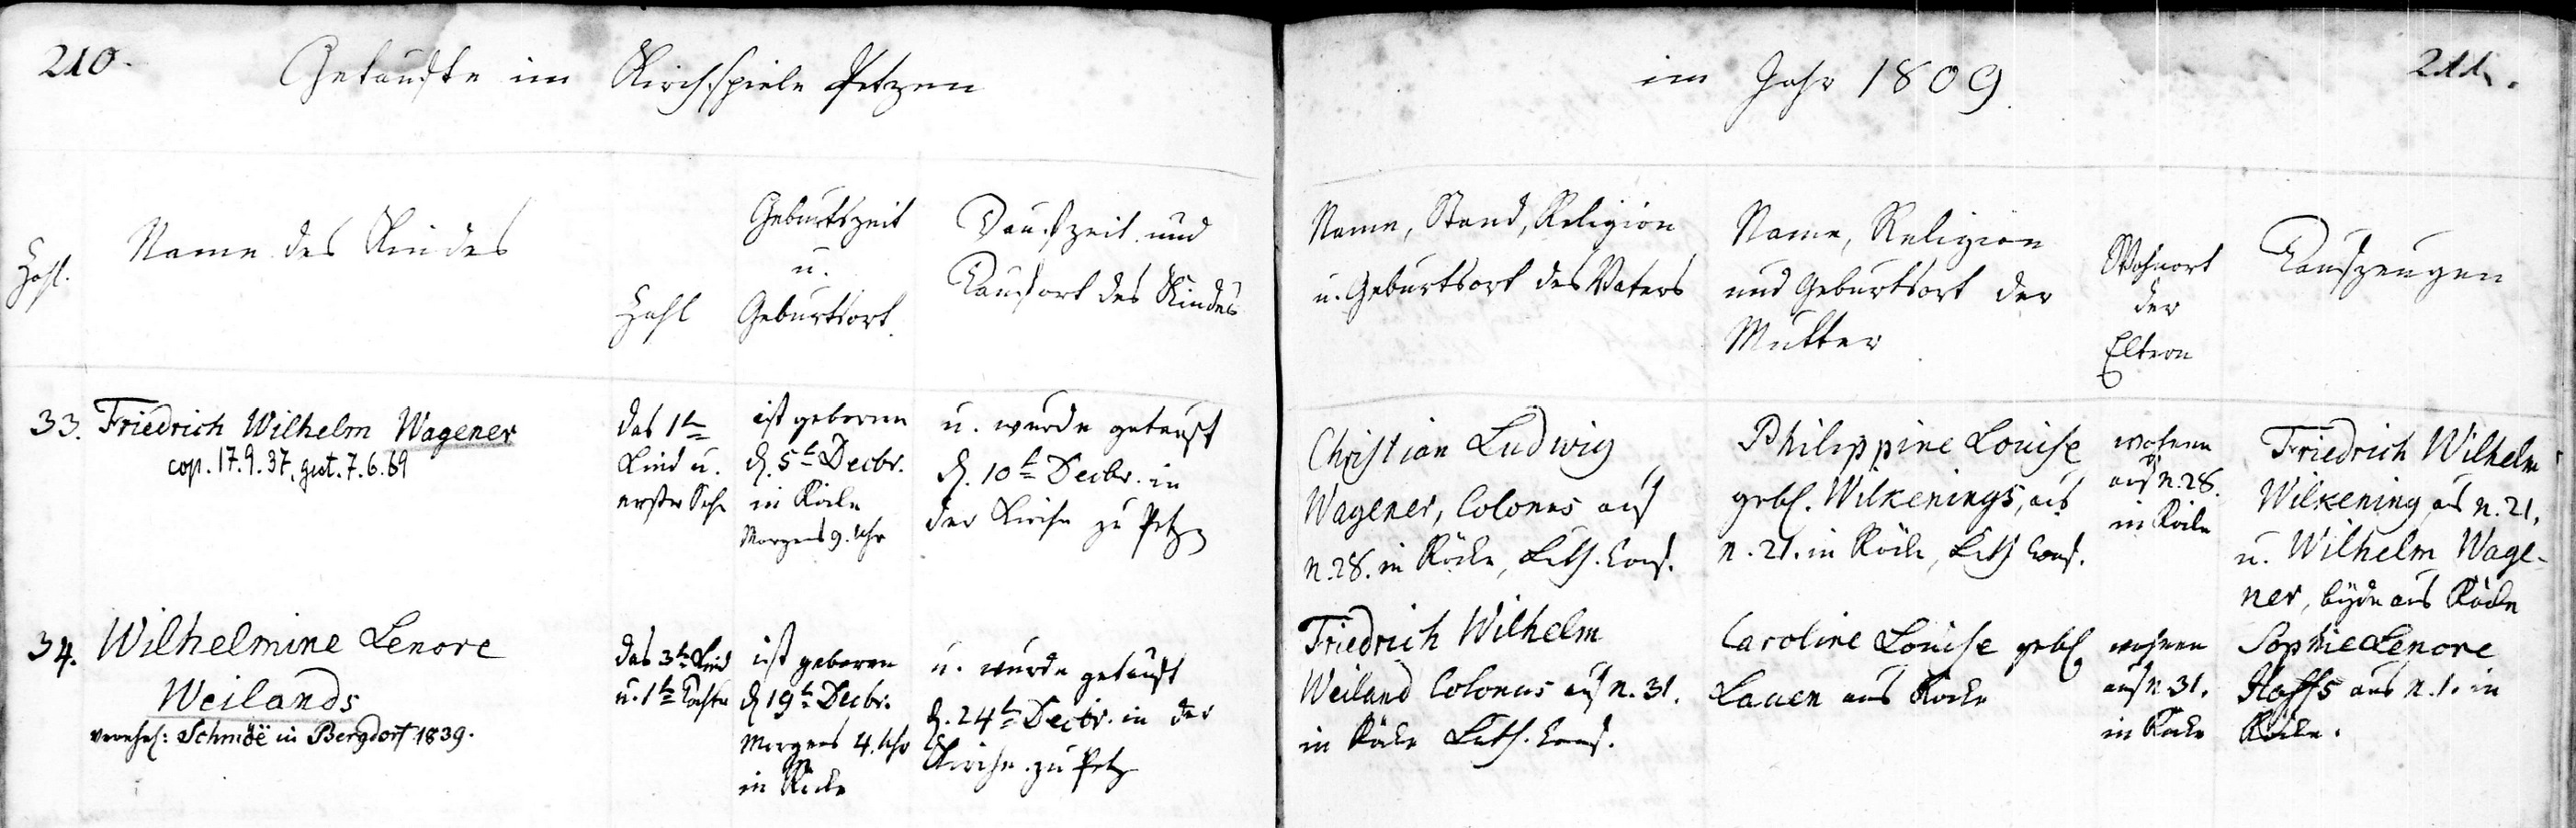 210.
Getaufte im Kirchspiele Petzen
Zahl.
Name des Kindes
Zahl
Geburtszeit
u.
Geburtsort.
Taufzeit und
Taufort des Kindes
33. Friedrich Wilhelm Wagener
cop. 17.9.37, gest. 7.6.69
das 1te
Kind u.
erster Sohn
ist geboren
d. 5t Decbr.
in Röcke
Morgens 9. Uhr
u. wurde getauft
d. 10t Decbr. in
der Kirche zu Petzen
34. Wilhelmine Lenore
Weilands
verehel: Schmöe in Bergdorf 1839.
das 3te Kind
u. 1te Tochter
ist geboren
d 19t Decbr.
Morgens 4. Uhr
in Röcke
u. wurde getauft
d. 24t Decbr. in der
Kirche zu Petz
im Jahr 1809.
211.
Name, Stand, Religion
u. Geburtsort des Vaters
Name, Religion
und Geburtsort der
Mutter
Wohnort
der
Eltern
Taufzeugen
Christian Ludwig
Wagener, Colonus auf
n. 28. in Röcke, Luth. Conf.
Philippine Louise
gebl. Wilkenings, aus
n. 21. in Röcke, Luth Conf.
wohnen
auf n. 28.
in Röcke
Friedrich Wilhelm
Wilkening aus n. 21.
u. Wilhelm Wage-
ner, beyde aus Röcke
Friedrich Wilhelm
Weiland Colonus auf n. 31.
in Röcke Luth. Conf.
Caroline Louise gebl
Lauen aus Röcke
wohnen
auf n. 31.
in Röcke
Sophie Lenore
Haffs aus n. 1. in
Röcke.